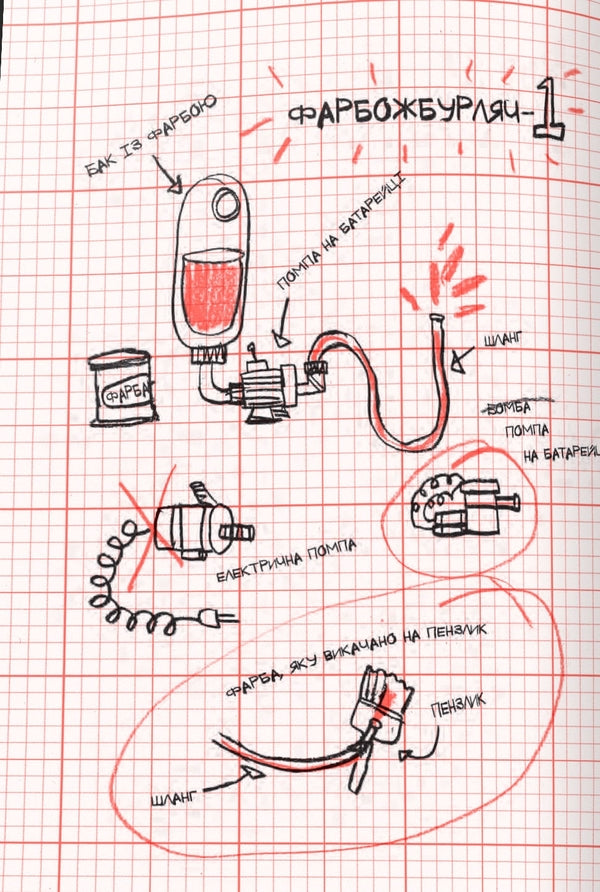 ФАРБОЖБУРЛЯЧ-1
БАК ІЗ ФАРБОЮ
ПОМПА НА БАТАРЕЙЦІ
ШЛАНГ
ФАРБА
БОМБА
ПОМПА
НА БАТАРЕЙЦ
ЕЛЕКТРИЧНА ПОМПА
ФАРБА, ЯКУ ВИКАЧАНО НА ПЕНЗЛИК
ПЕНЗЛИК
ШЛАНГ